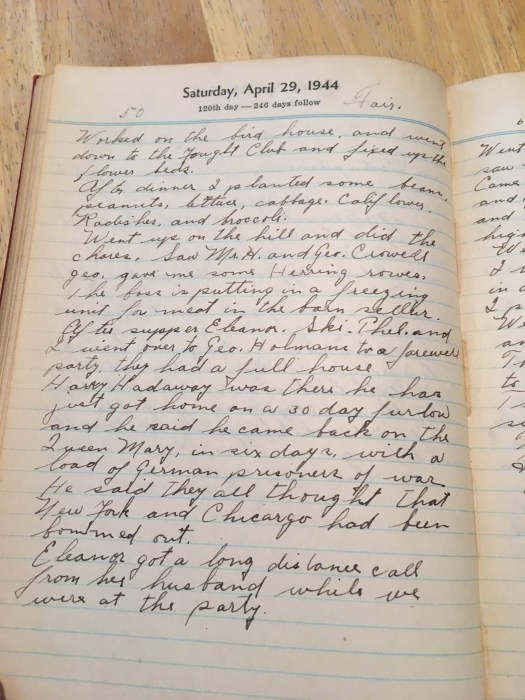 Saturday, April 29, 1944
120th day — 246 days follow
50 Fair.
Worked on the bird house, and went
down to the Yought Club and fixed up the
flower beds.
After dinner I planted some beans,
peanuts, lettuce, cabbage, Califlower,
Radishes, and broccoli.
Went up on the hill and did the
chores. Saw Mr. H. and Geo. Crowell
geo. gave me some Herring rowes.
The boss is putting in a freezing
unit for meat in the barn seller.
After supper Eleanor, Ski. Phil. and
I went over to Geo. Holmans to a farewell
party, they had a full house
Harry Hadaway was there he has
just got home on a 30 day furlow
and he said he came back on the
Queen Mary, in six days, with a
load of German prisoners of war
He said they all thought that
New York and Chicargo had been
bommed out.
Eleanor got a long distance call
from her husband while we
were at the party.
6
Went
saw
Came
and
and
in